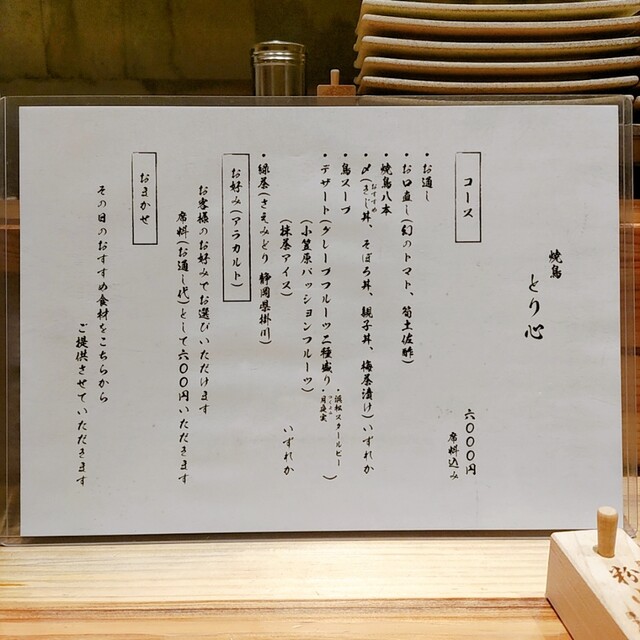 焼鳥 とり心
コース
六〇〇〇円
席料込み
・お通し
・お口直し(幻のトマト、筍土佐酢)
・焼鳥八本
おすすめ
・〆(きじ丼、そぼろ丼、親子丼、梅茶漬け)いずれか
・鳥スープ
・デザート(グレープフルーツ二種盛り・浜松スタールビー
・月夜実)
(小笠原パッションフルーツ)
(抹茶アイス)
いずれか
・緑茶(さえみどり 静岡県掛川)
お好み(アラカルト)
お客様のお好みでお選びいただけます
席料(お通し代)として六〇〇円いただきます
おまかせ
その日のおすすめ食材をこちらから
ご提供させていただきます
粉